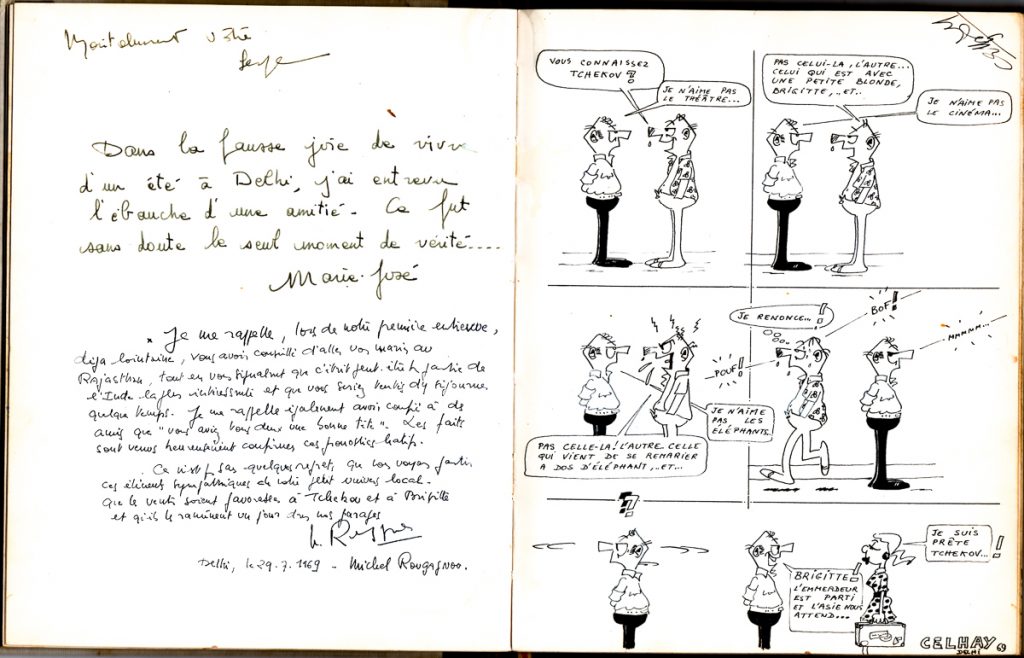 Montalement vôtre
Serge
Dans la fausse joie de vivre
d'un été à Delhi, j'ai entrevu
l'ébauche d'une amitié. Ce fut
sans doute le seul moment de vérité....
Marie-José
Je me rappelle, lors de notre première entrevue,
déjà lointaine, vous avoir conseillé d'aller vos maris au
Rajasthan, tout en vous signalant que c'était
l'Inde la plus intéressante et que vous seriez tentés d'y séjourner
quelque temps. Je me rappelle également avoir confié à des
amis que "vous aviez tous deux une bonne tête". Les faits
sont venus heureusement confirmer ces pronostics hatifs.
Ce n'est pas sans quelques regrets, que nous voyons partir
ces éléments sympathiques de notre petit univers local.
Que les vents soient favorables à Tchekov et à Brigitte
et qu'ils les ramènent un jour dans nos parages
Delhi, le 29.7.1969 - Michel
CELHAY
VOUS CONNAISSEZ
TCHEKOV ?
JE N'AIME PAS
LE THÉÂTRE...
PAS CELUI-LA, L'AUTRE...
CELUI QUI EST AVEC
UNE PETITE BLONDE,
BRIGITTE, ..ET..
JE N'AIME PAS
LE CINÉMA...
PAS CELLE-LA! L'AUTRE CELLE
QUI VIENT DE SE REMARIER
A DOS D'ÉLÉPHANT,..ET...
JE N'AIME
PAS LES
ELÉPHANTS.
JE RENONCE...!
POUF!
BOF!
HMMMM...
???
BRIGITTE!
L'EMMERDEUR
EST PARTI
ET L'ASIE NOUS
ATTEND...
JE SUIS
PRÊTE
TCHEKOV...!
CELHAY 69
DELHI